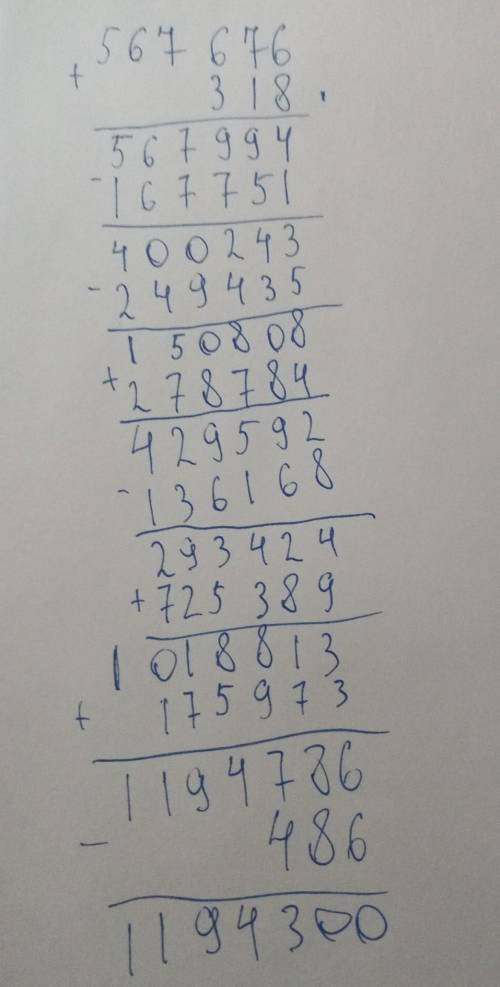 567 676
+ 318 .
567994
- 167751
400243
- 249435
150808
+ 278784
429592
- 136168
293424
+ 725389
1018813
+ 175973
1194786
- 486
1194300